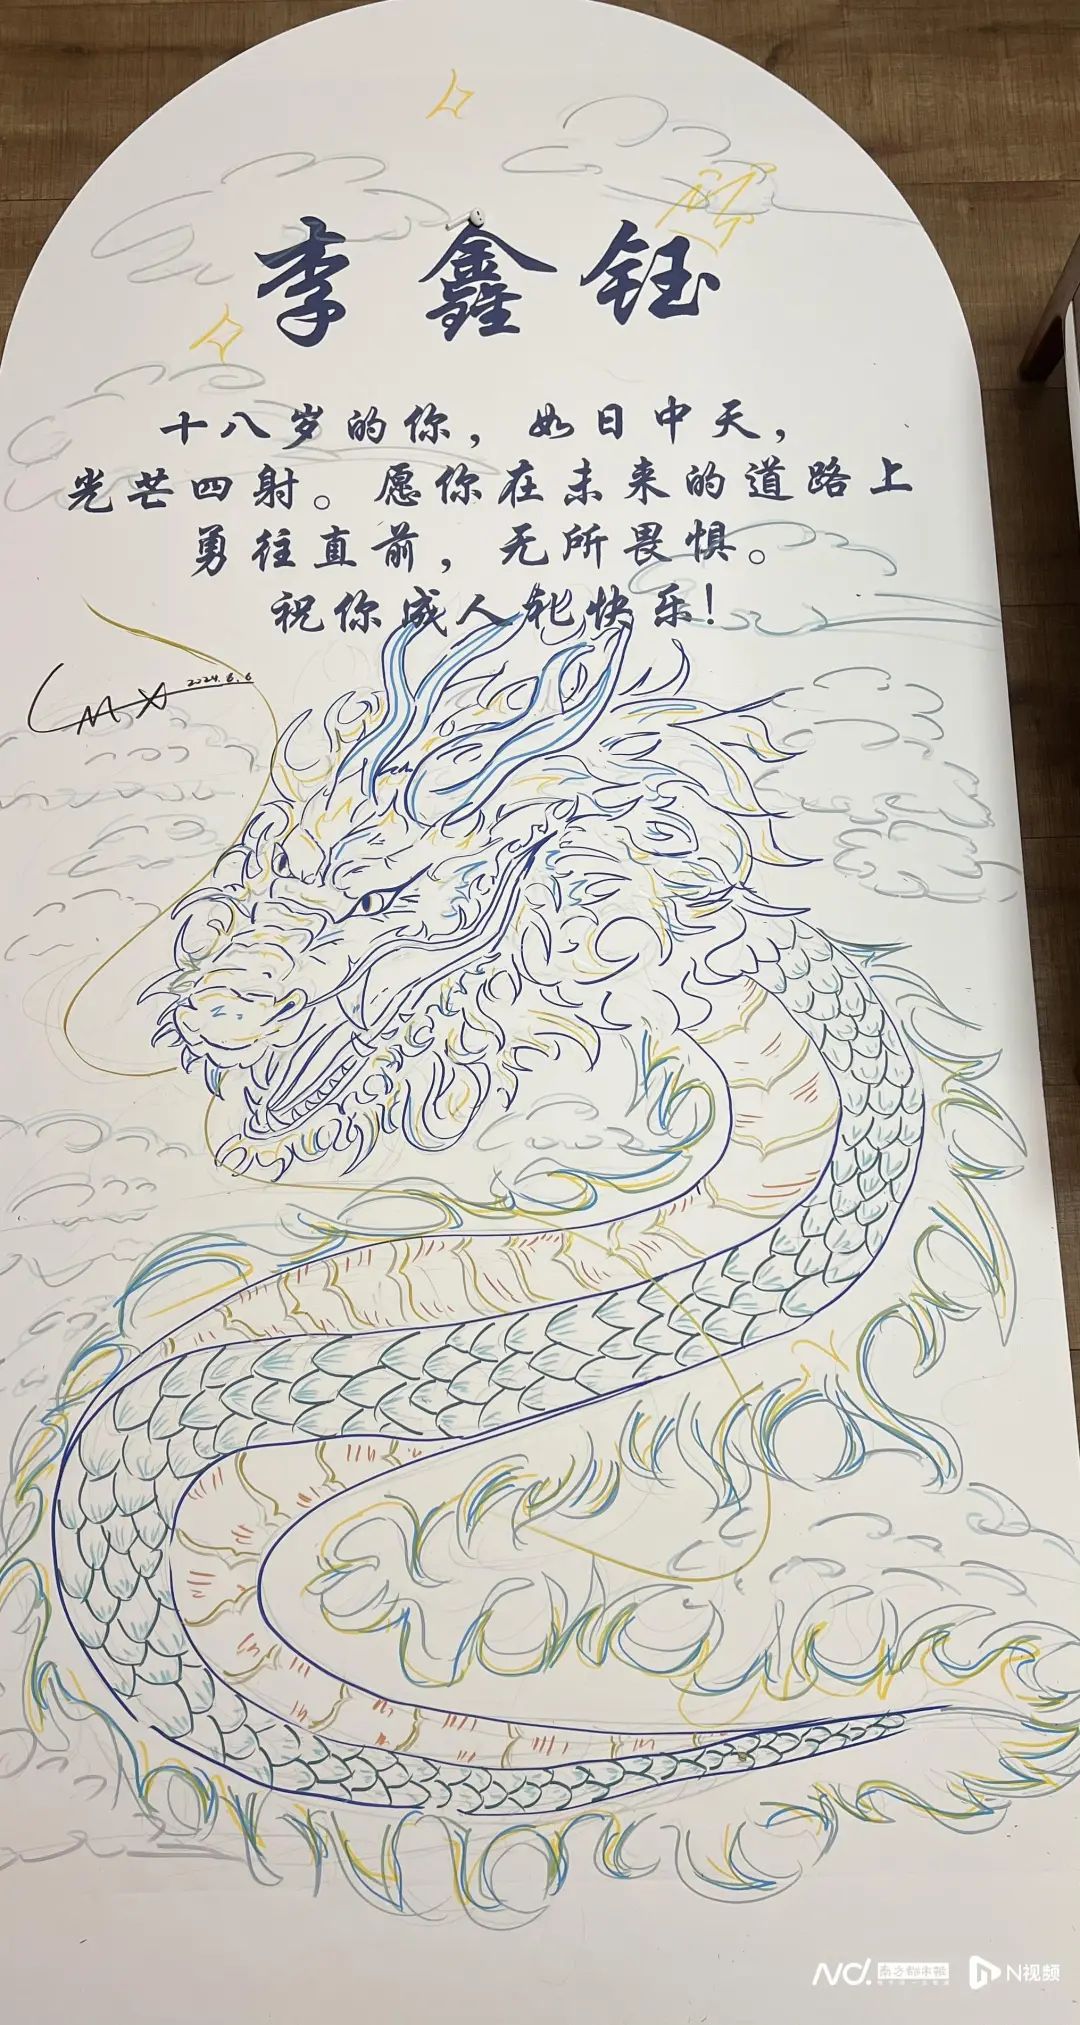 李鑫钰
十八岁的你，如日中天，
光芒四射。愿你在未来的道路上
勇往直前，无所畏惧。
祝你成人礼快乐！
2024.6.6
ND. 南方都市报
N视频